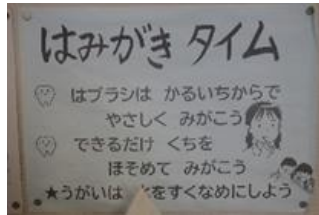 はみがき タイム
はブラシは かるいちからで
やさしく みがこう
できるだけ くちを
ほそめて みがこう
★うがいは 水をすくなめにしよう